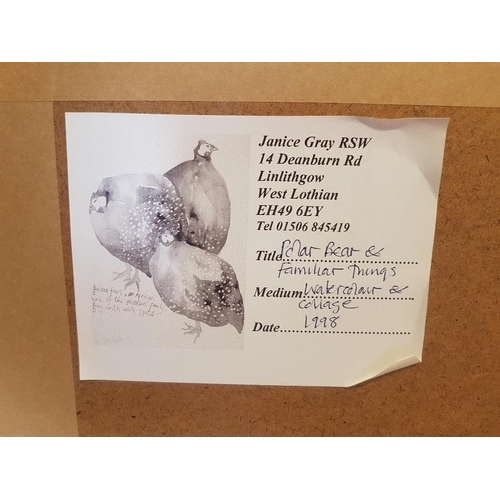 Janice Gray RSW
14 Deanburn Rd
Linlithgow
West Lothian
EH49 6EY
Tel 01506 845419
Title Polar Bear &
Familiar Things
Medium Watercolour &
Collage
Date 1998